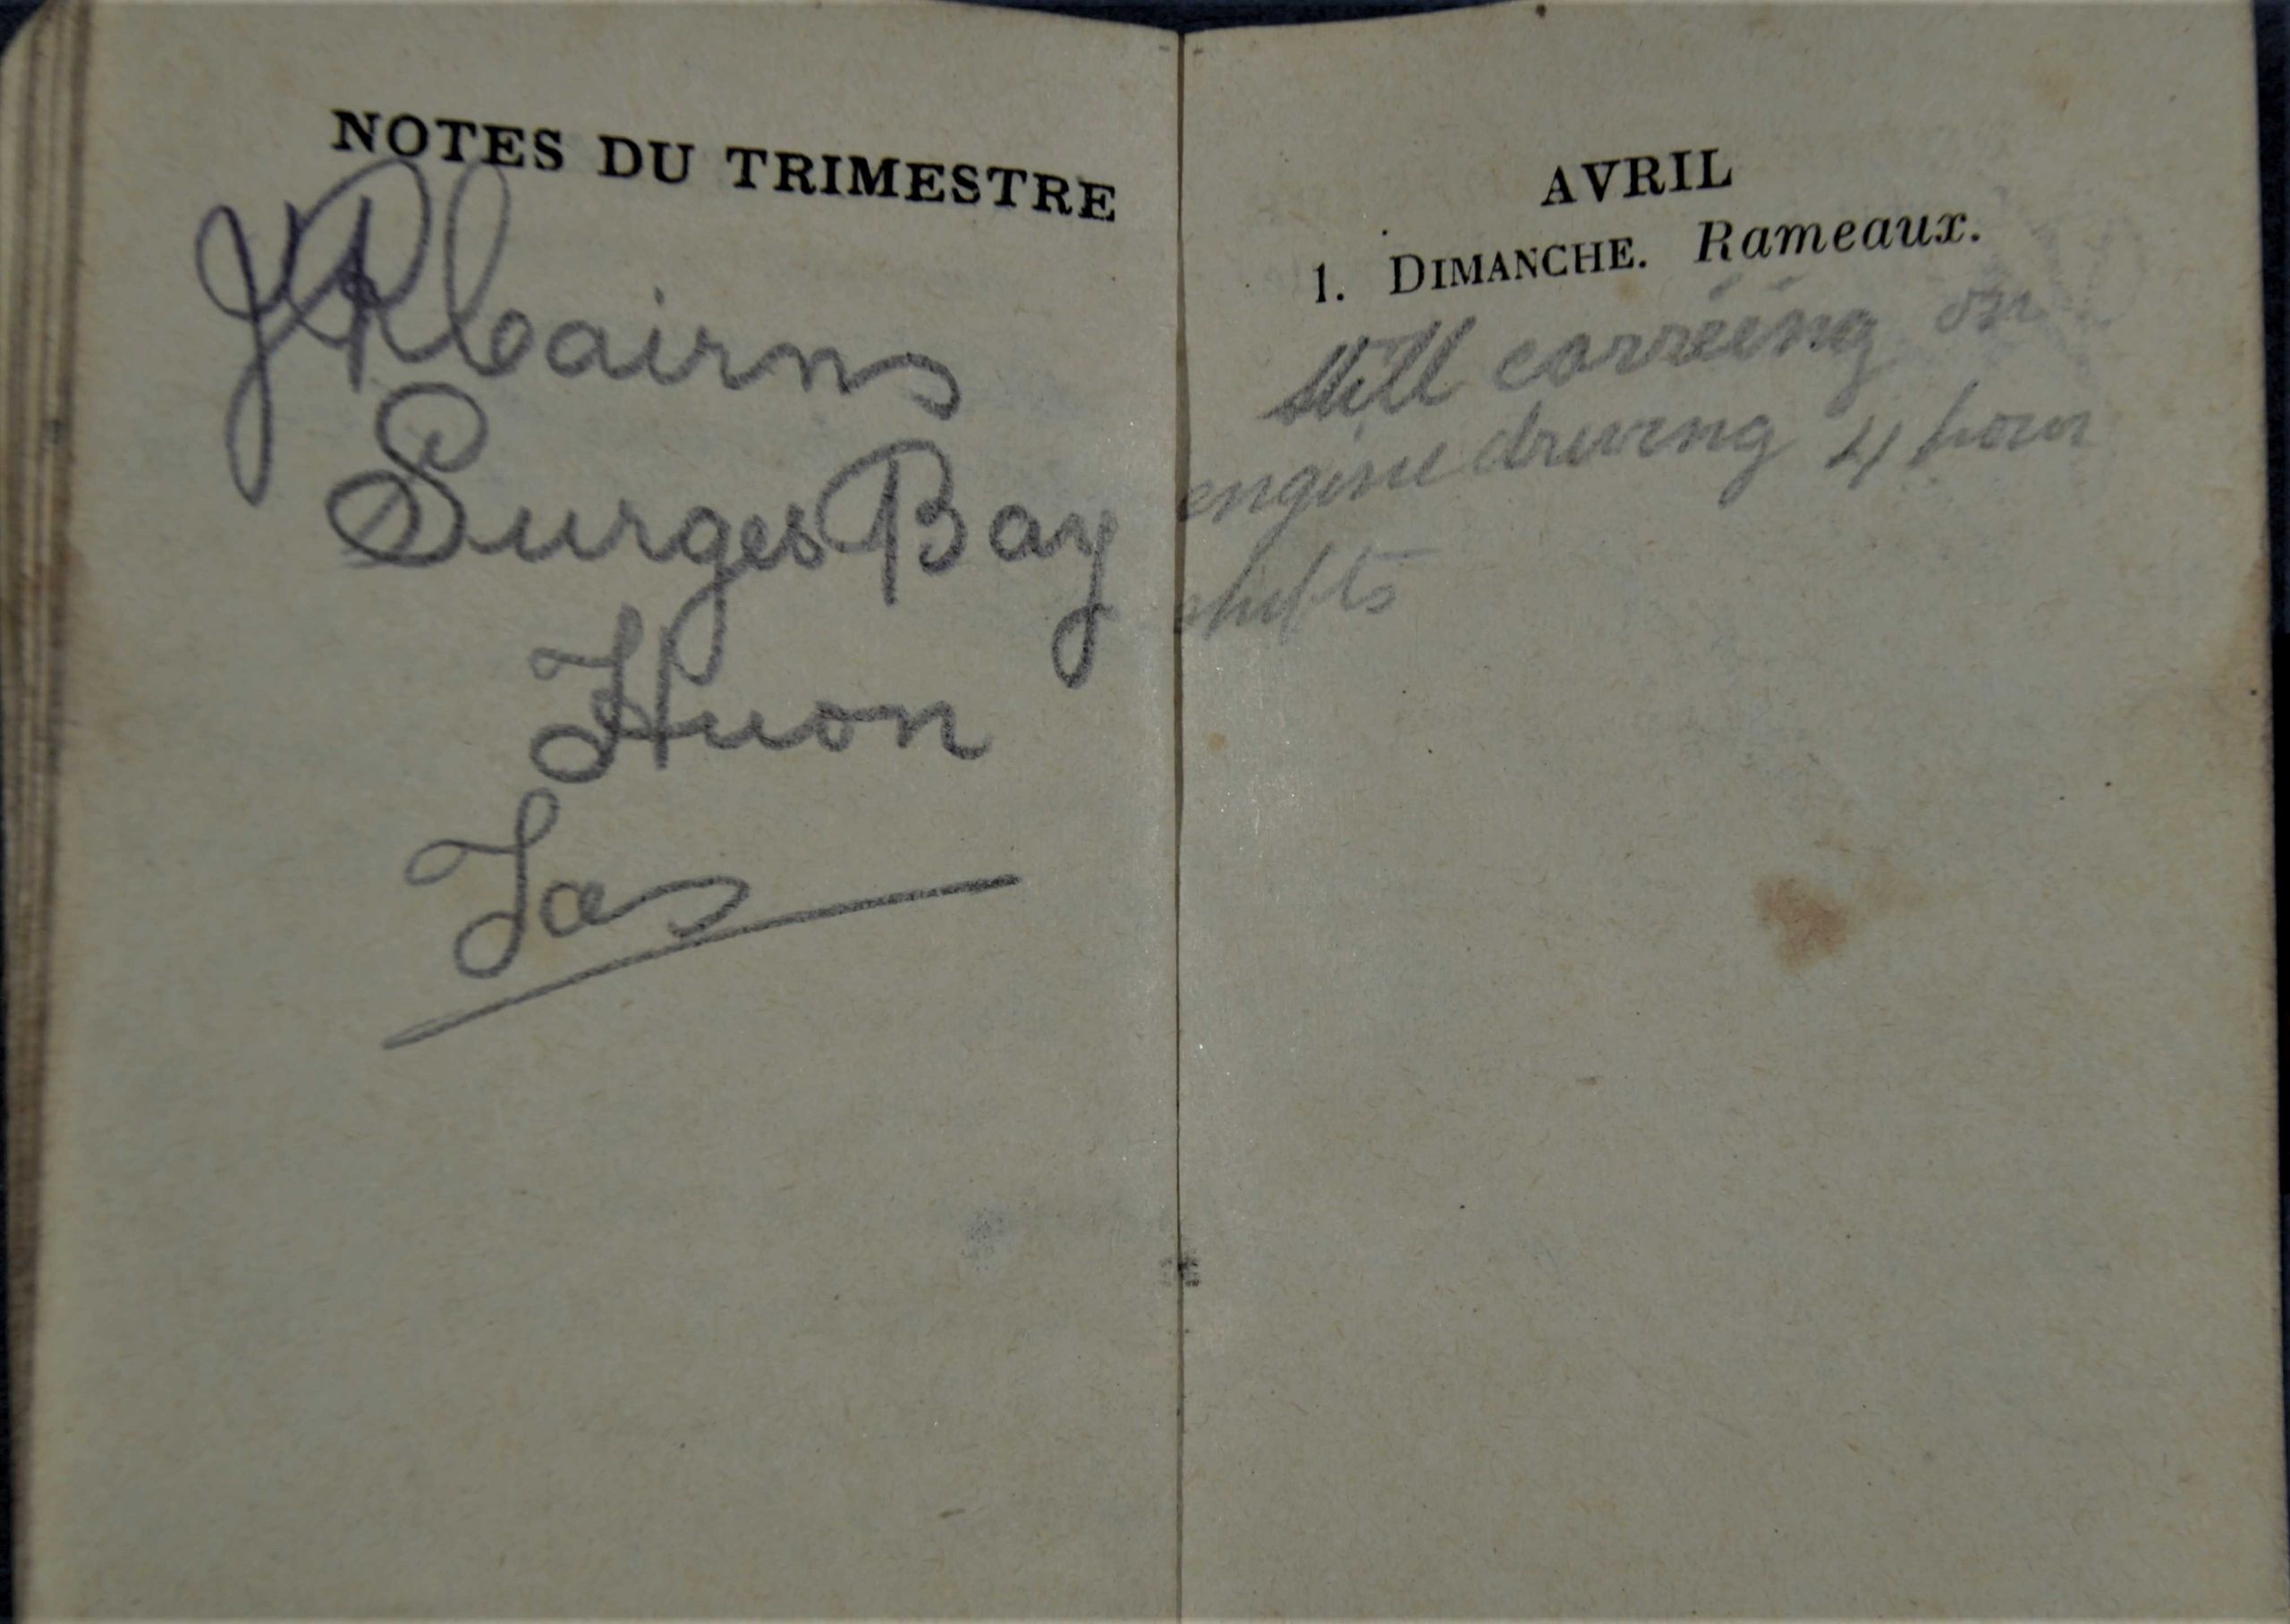 NOTES DU TRIMESTRE
J R Cairns
Surges Bay
Huon
Tas
AVRIL
1. DIMANCHE. Rameaux.
Still carreing on
engine driving 4 hour
shifts